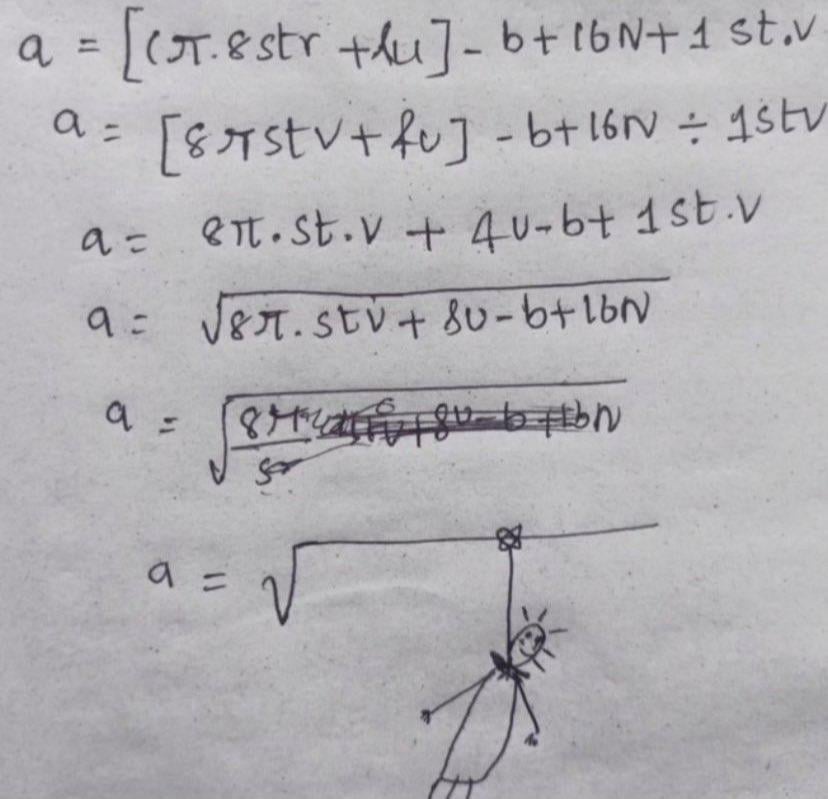 a = [(π.8str + fu] - b + 16N + 1 st.v
a = [8πstv + fu] - b + 16N ÷ 1stv
a = 8π.st.v + 4u - b + 1st.v
a = √8π.stv + 8u - b + 16N
a = √8π +8u - b + 16N
a = √